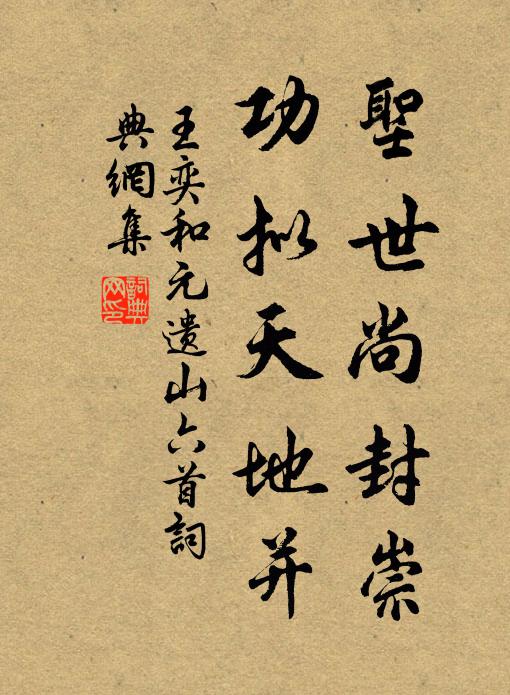 聖世尚封崇
功拟天地并
王奕和元遗山六首詞
典網集
詞典网印